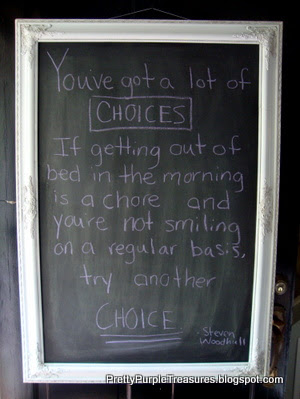 You've got a lot of
CHOICES
If getting out of
bed in the morning
is a chore and
you're not smiling
on a regular basis,
try another
CHOICE.
- Steven
Woodhull
PrettyPurpleTreasures.blogspot.com